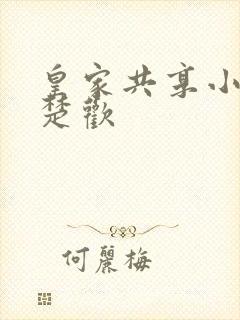 皇家共享小
楚歡
何麗梅